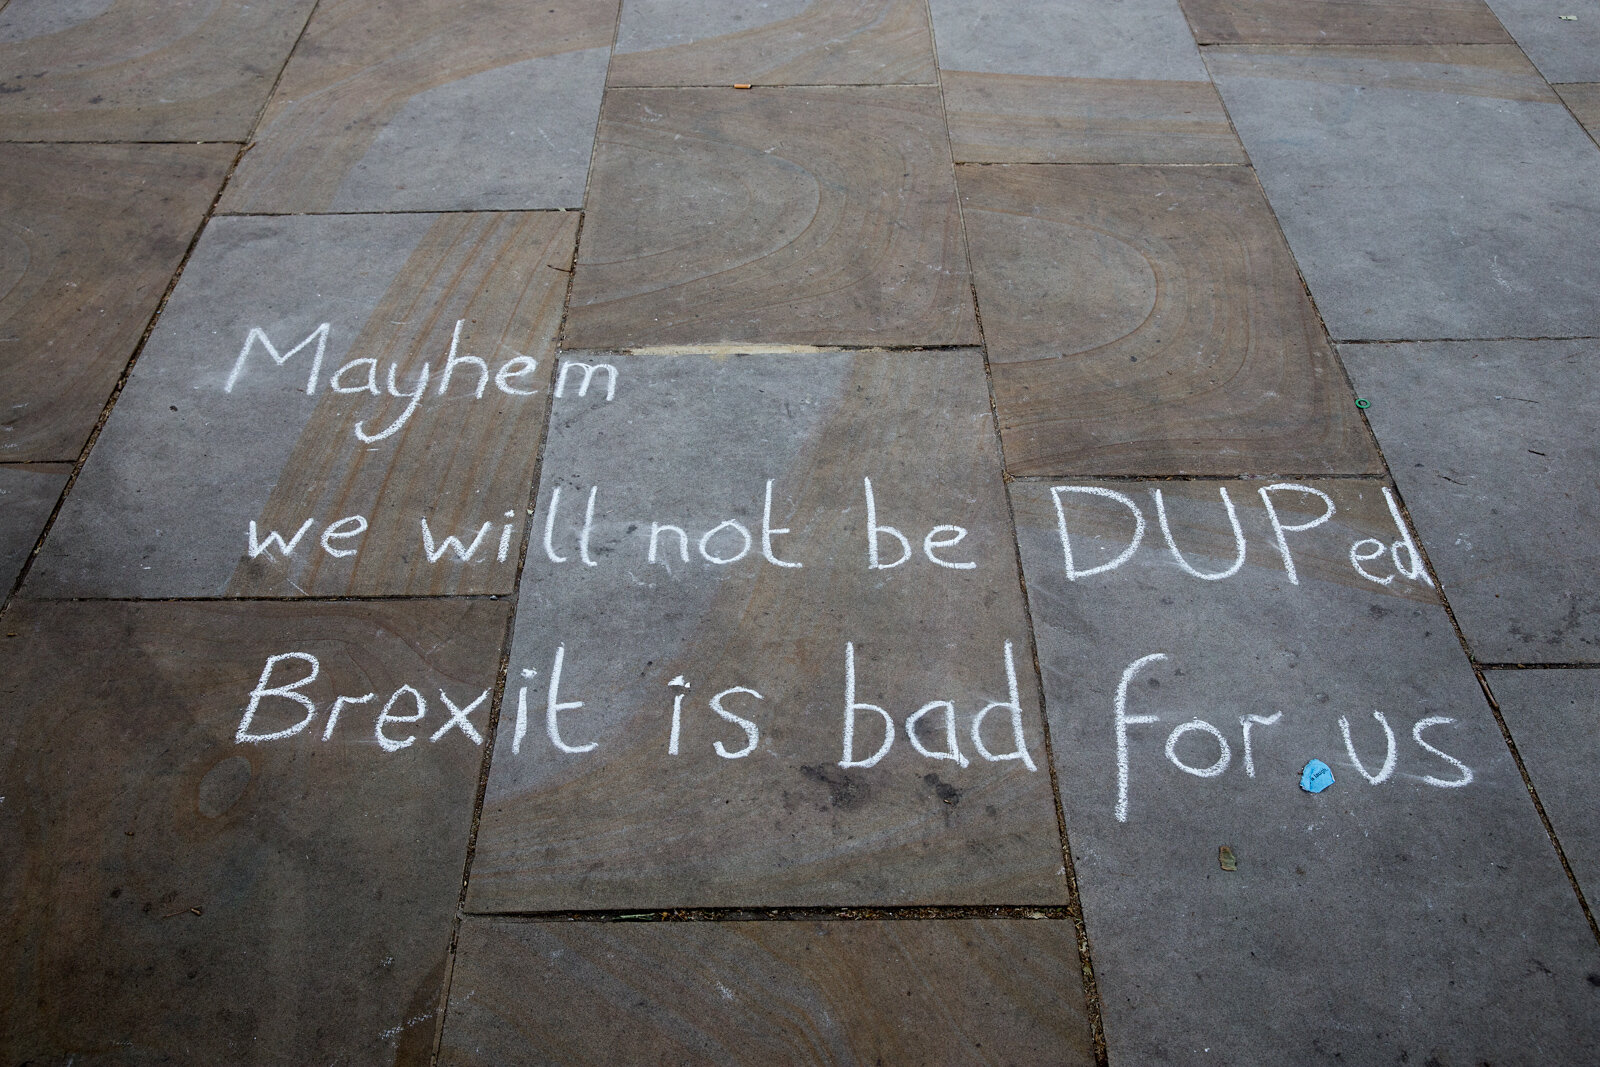 Mayhem
we will not be DUPed
Brexit is bad for us